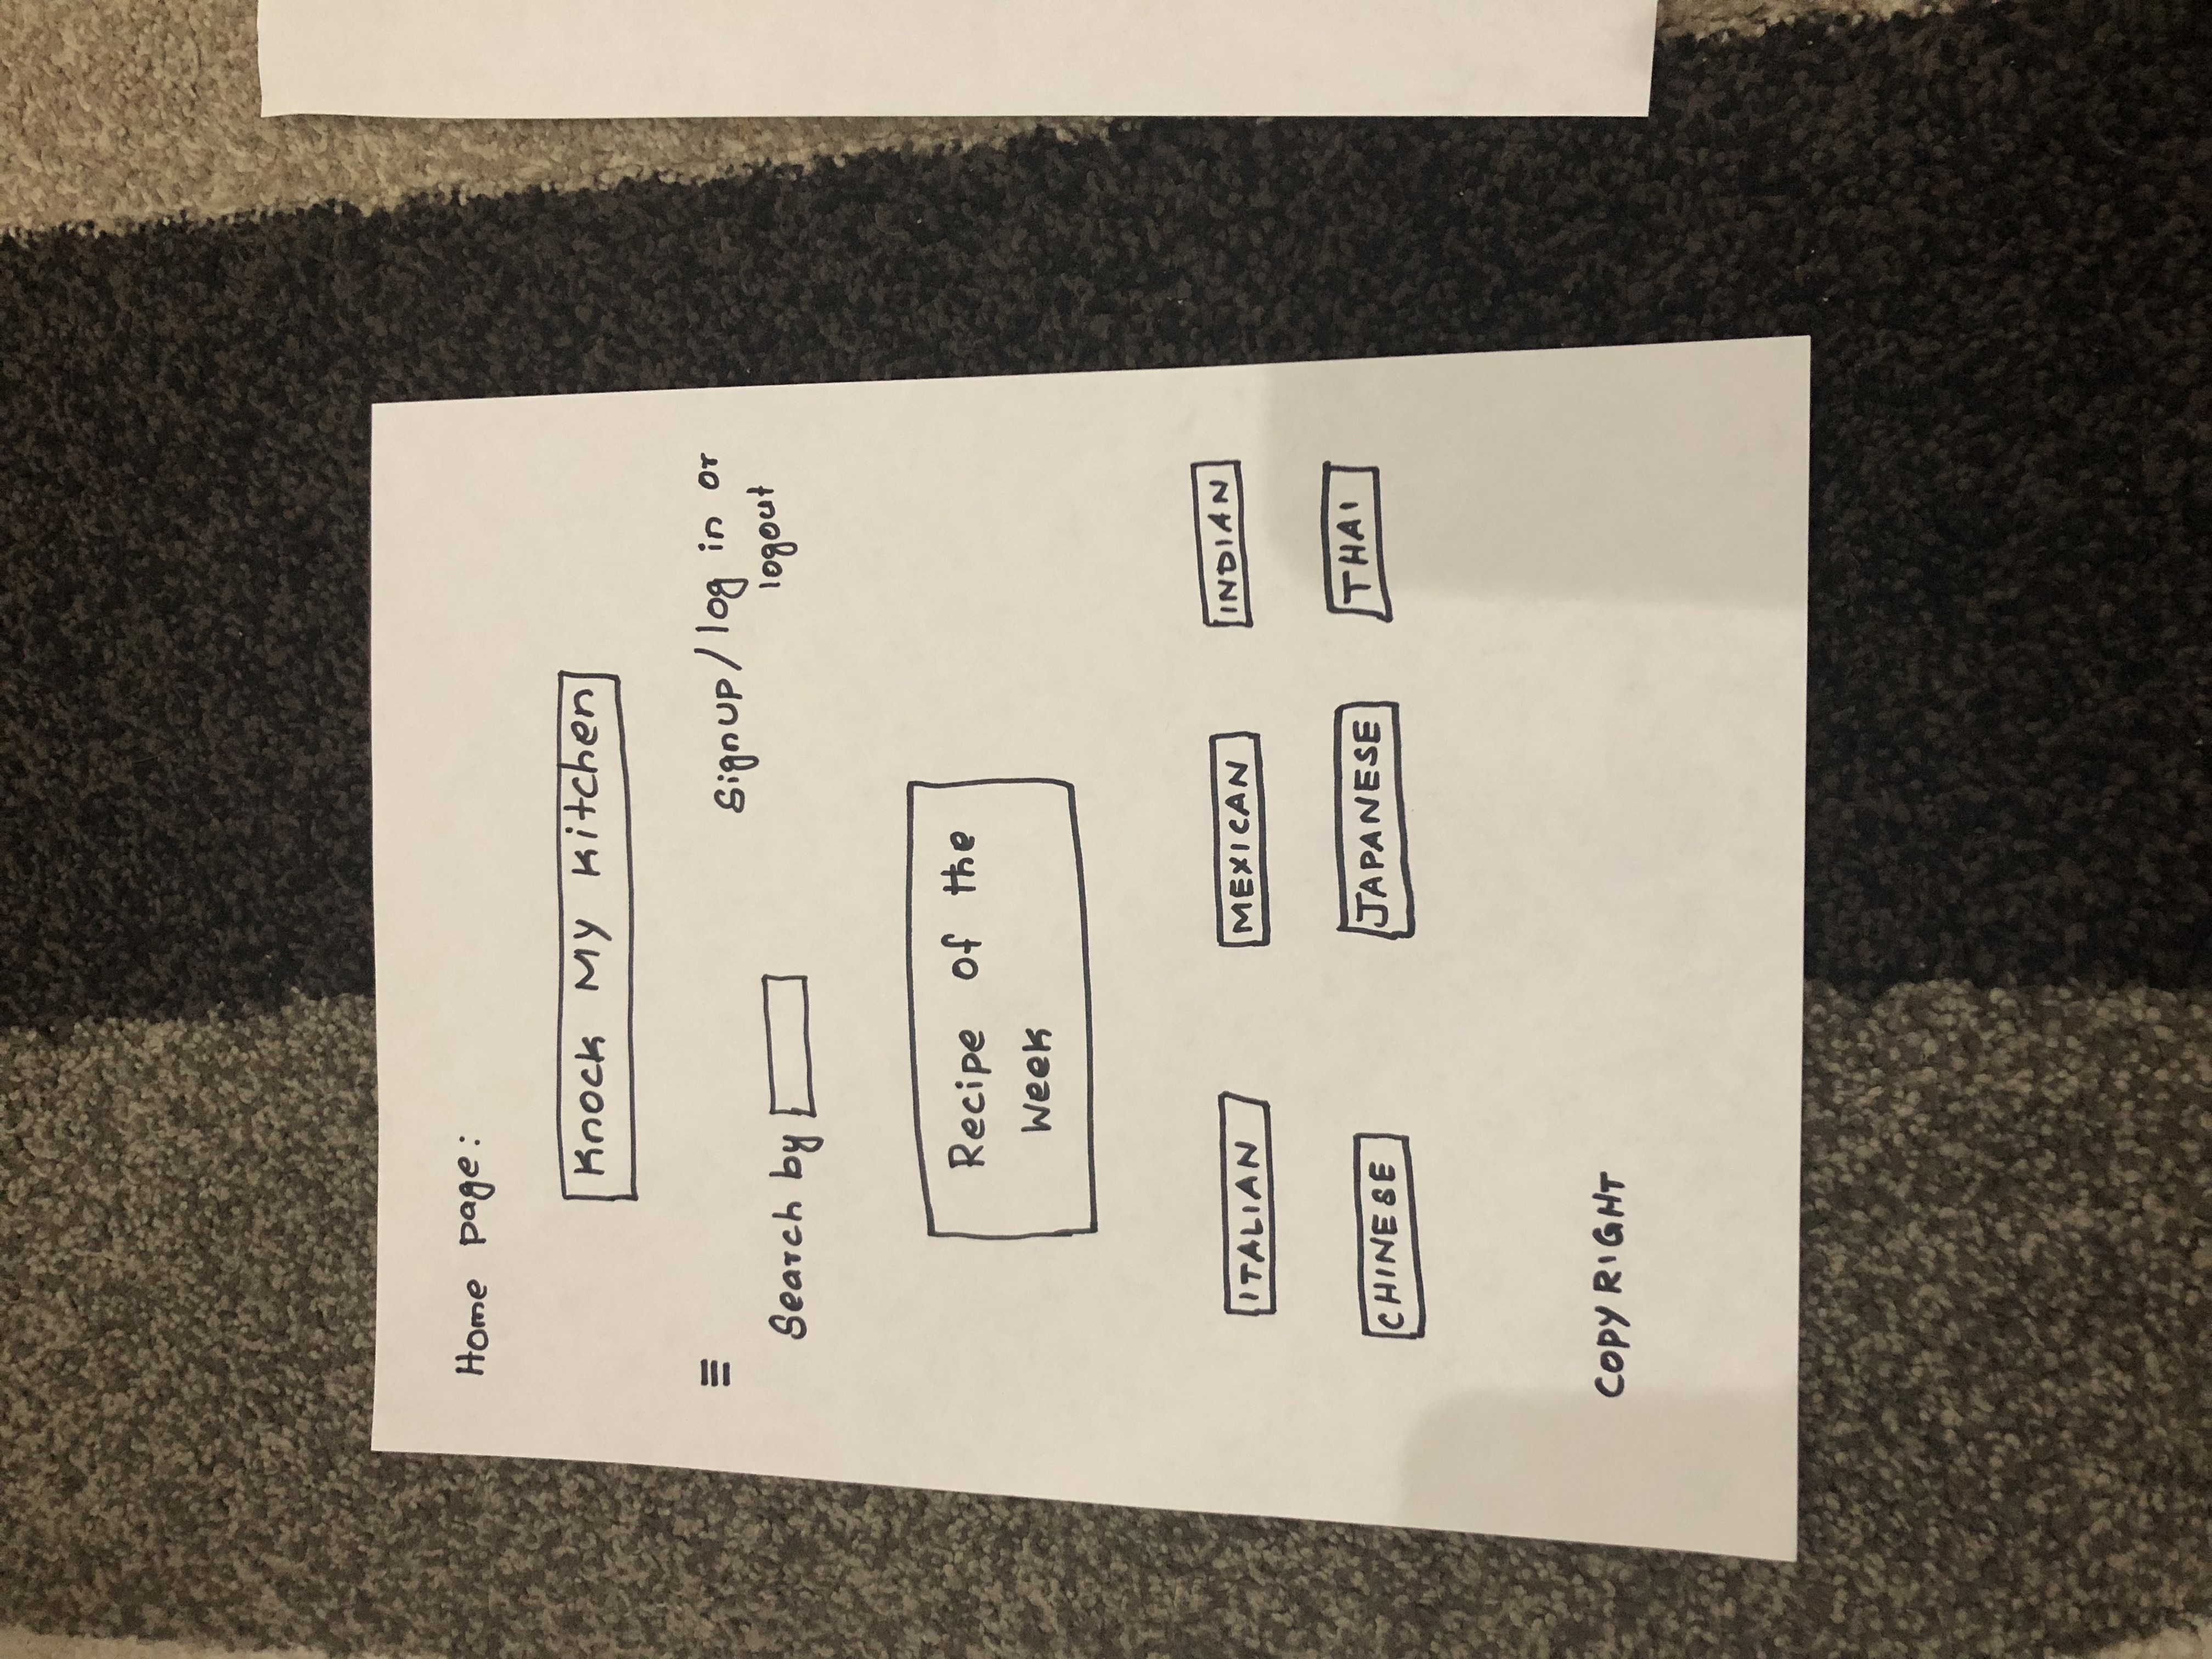 Home page:
Knock My Kitchen
Signup/log in or
logout
Search by
Recipe of the
Week
ITALIAN MEXICAN INDIAN
CHINESE JAPANESE THAI
COPYRIGHT